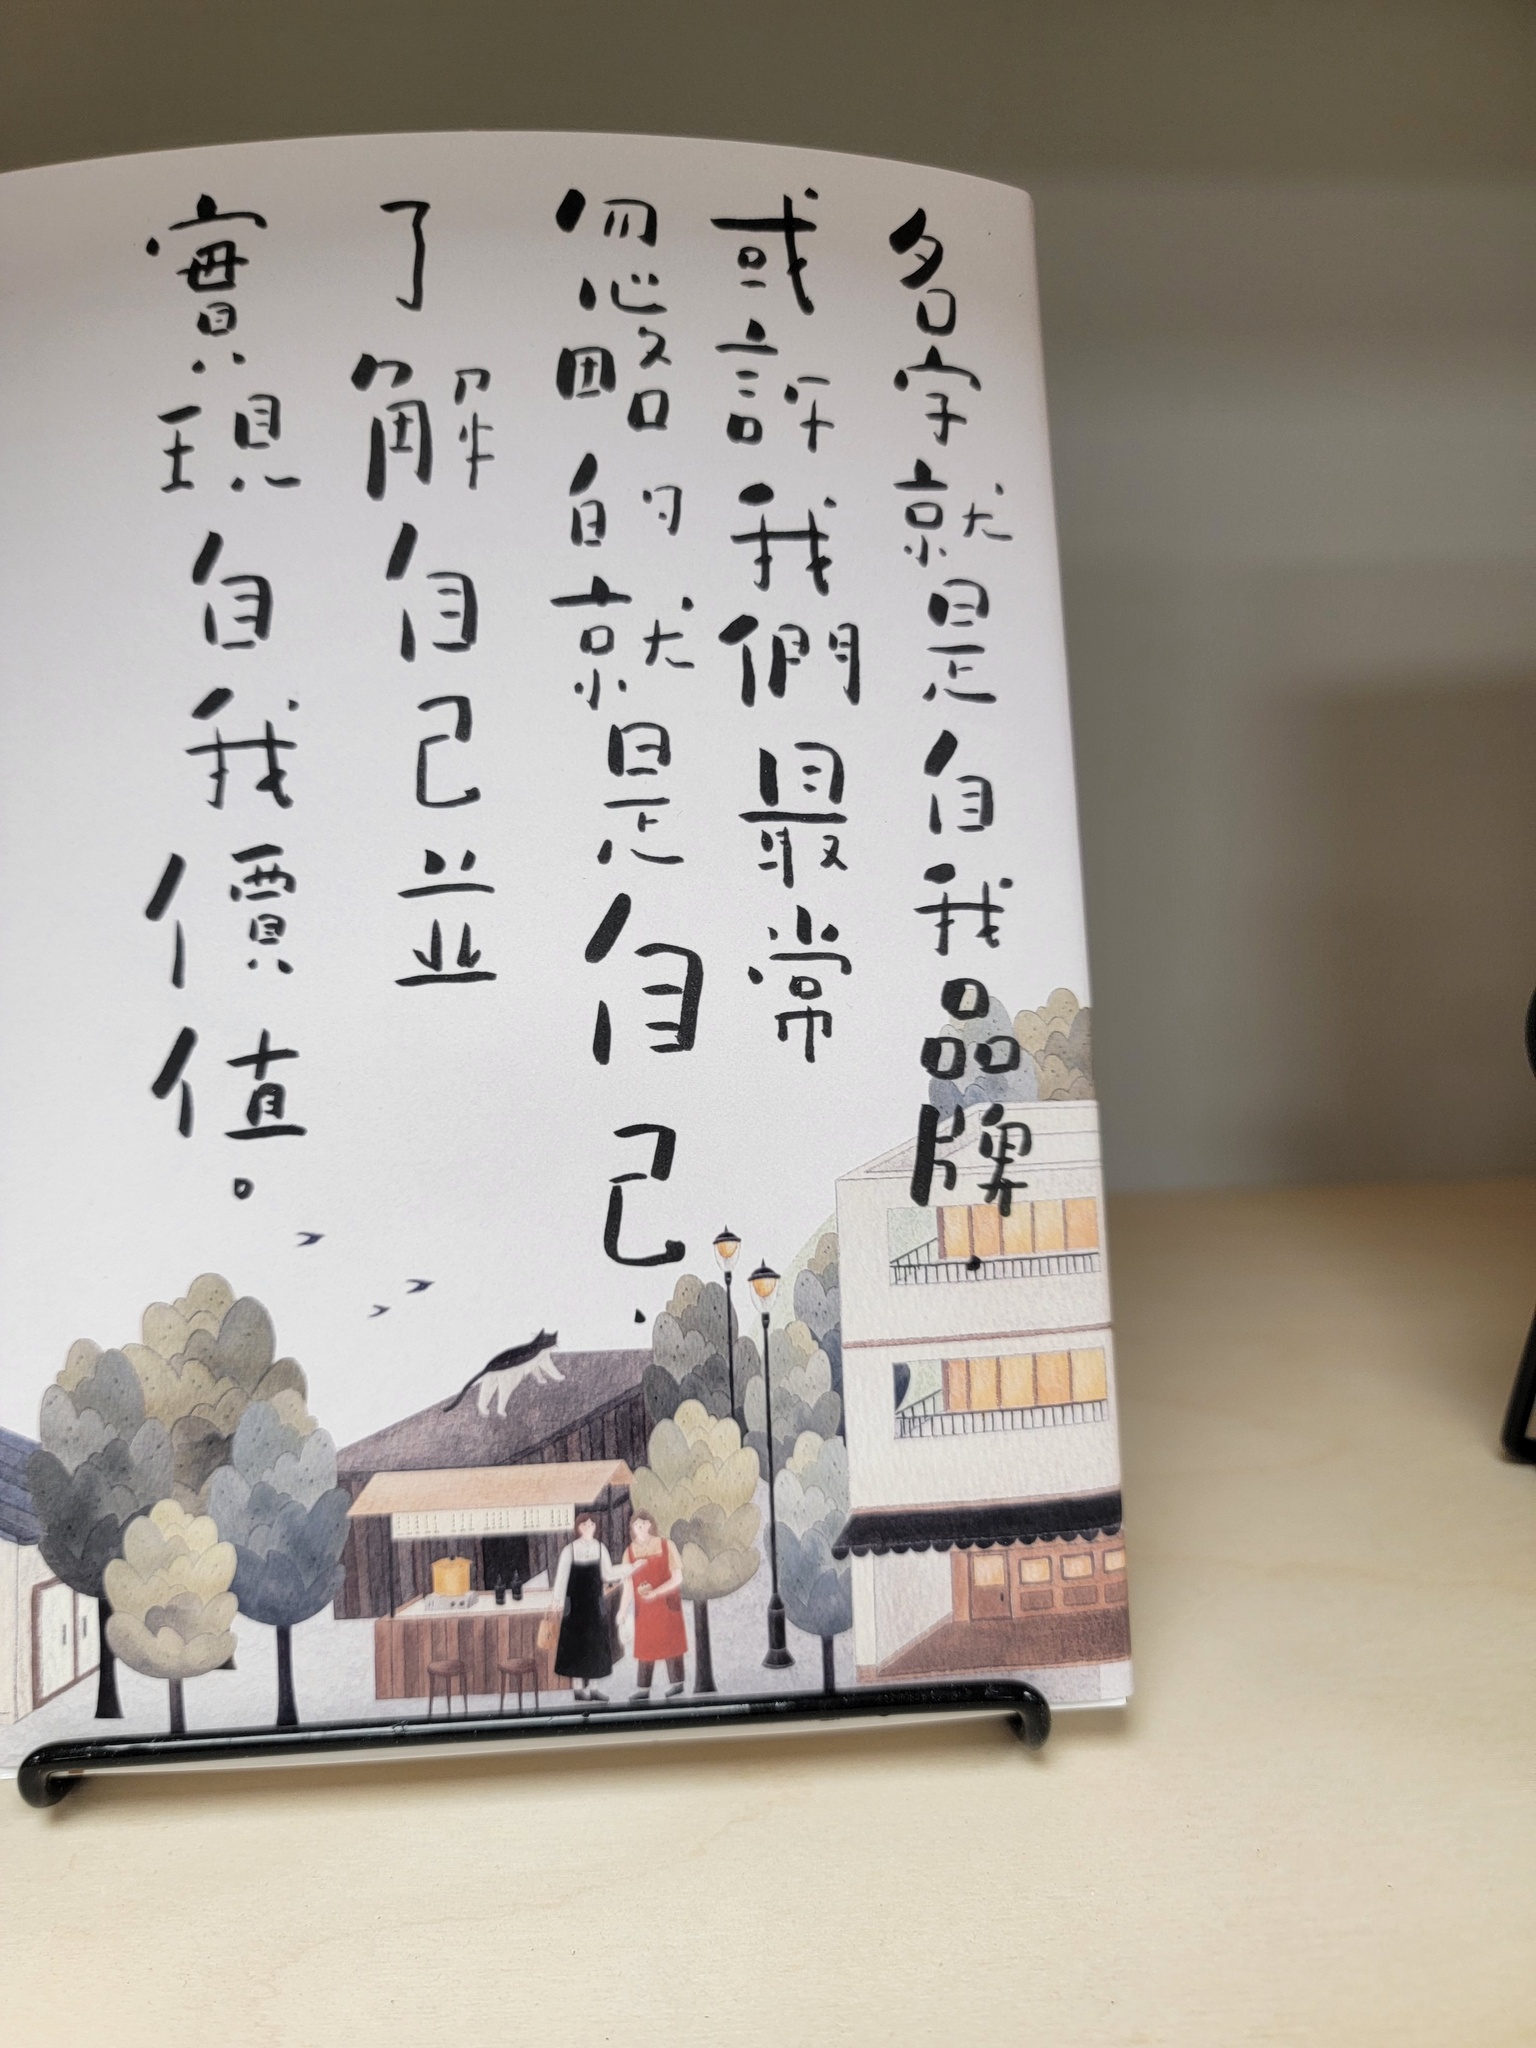 名字就是自我品牌.
或許我們最常
忽略的就是自己.
了解自己並
實現自我價值。